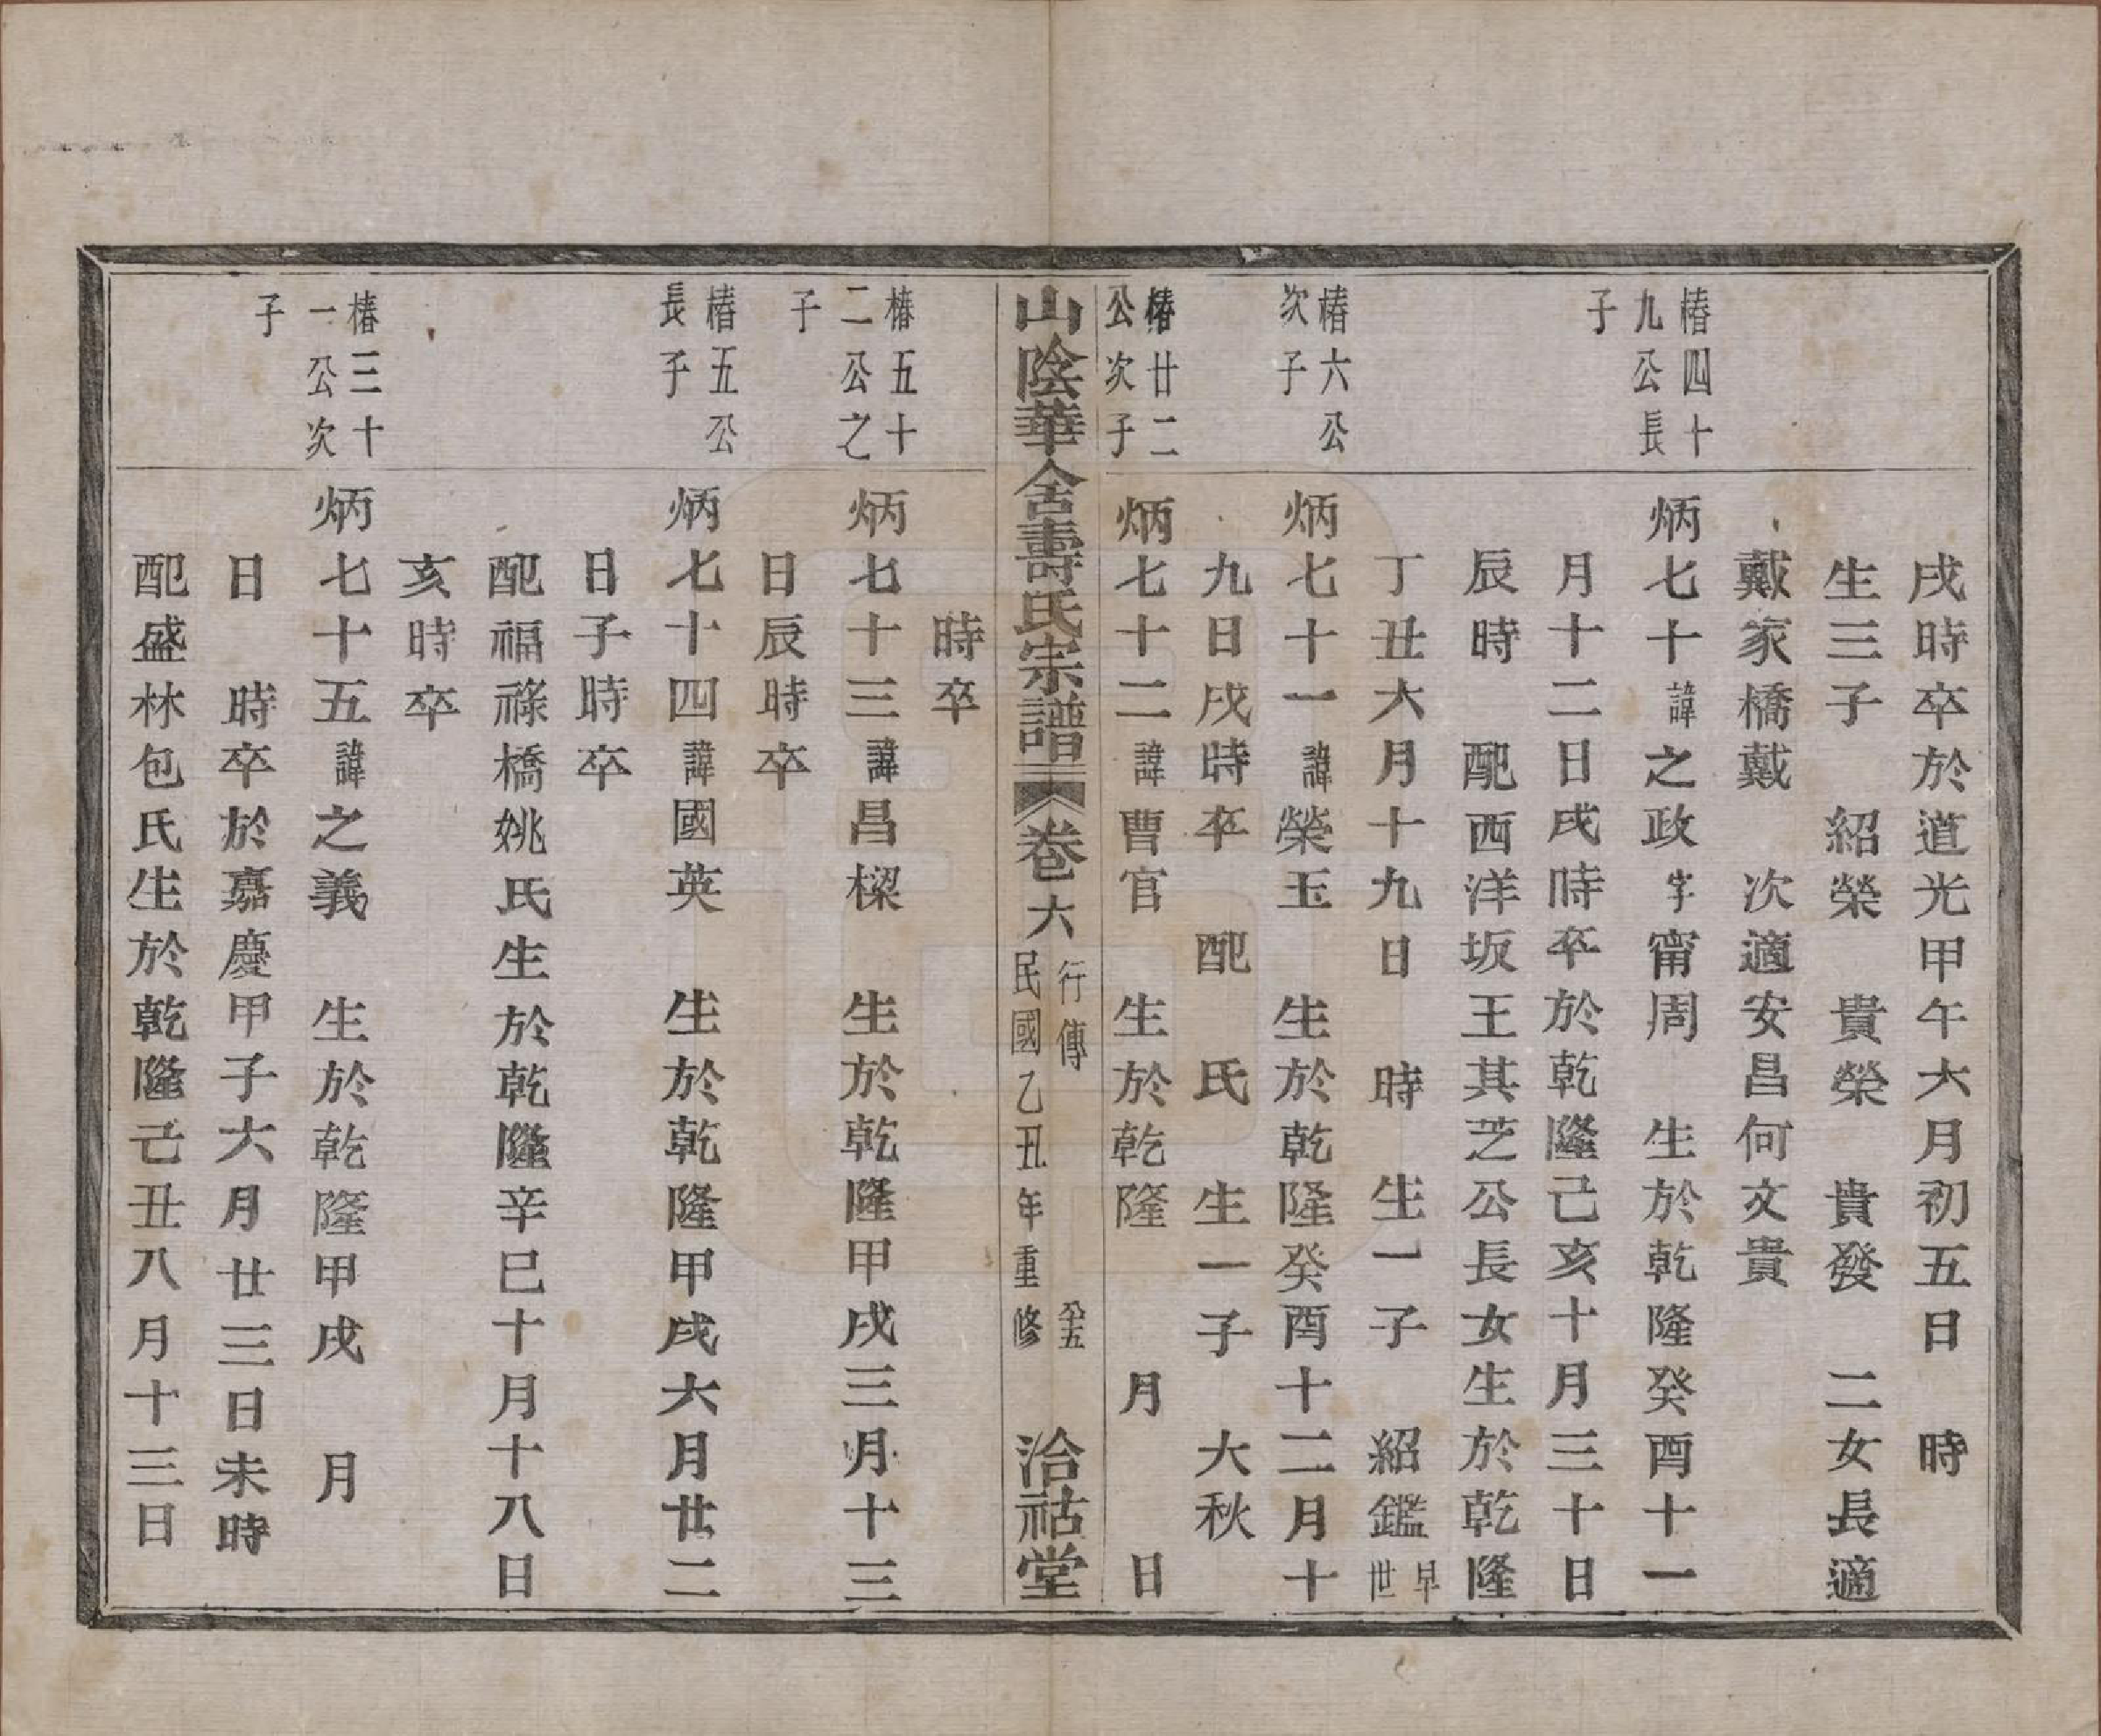 戌時卒於道光甲午六月初五日　時
生三子　紹榮　貴榮　貴發　二女長適
戴家橋戴　次適安昌何文貴
椿四十
九公長
子
炳七十諱之政字甯周　生於乾隆癸酉十一
月十二日戌時卒於乾隆己亥十月三十日
辰時　配西洋坂王其芝公長女生於乾隆
丁丑六月十九日　時　生一子　紹鑑早世
椿六公
次子
炳七十一諱榮玉　生於乾隆癸酉十二月十
九日戌時卒　配　氏　生一子　大秋
椿廿二
公次子
炳七十二諱曹官　生於乾隆　　月　　日
山陰華舍壽氏宗譜　卷六　行傳　民國乙丑年重修　八十五　洽祜堂
時卒
椿五十
二公之
子
炳七十三諱昌樑　生於乾隆甲戌三月十三
日辰時卒
椿五公
長子
炳七十四諱國英　生於乾隆甲戌六月廿二
日子時卒
配福祿橋姚氏生於乾隆辛巳十月十八日
亥時卒
椿三十
一公次
子
炳七十五諱之義　生於乾隆甲戌　月
日　時卒於嘉慶甲子六月廿三日未時
配盛林包氏生於乾隆己丑八月十三日